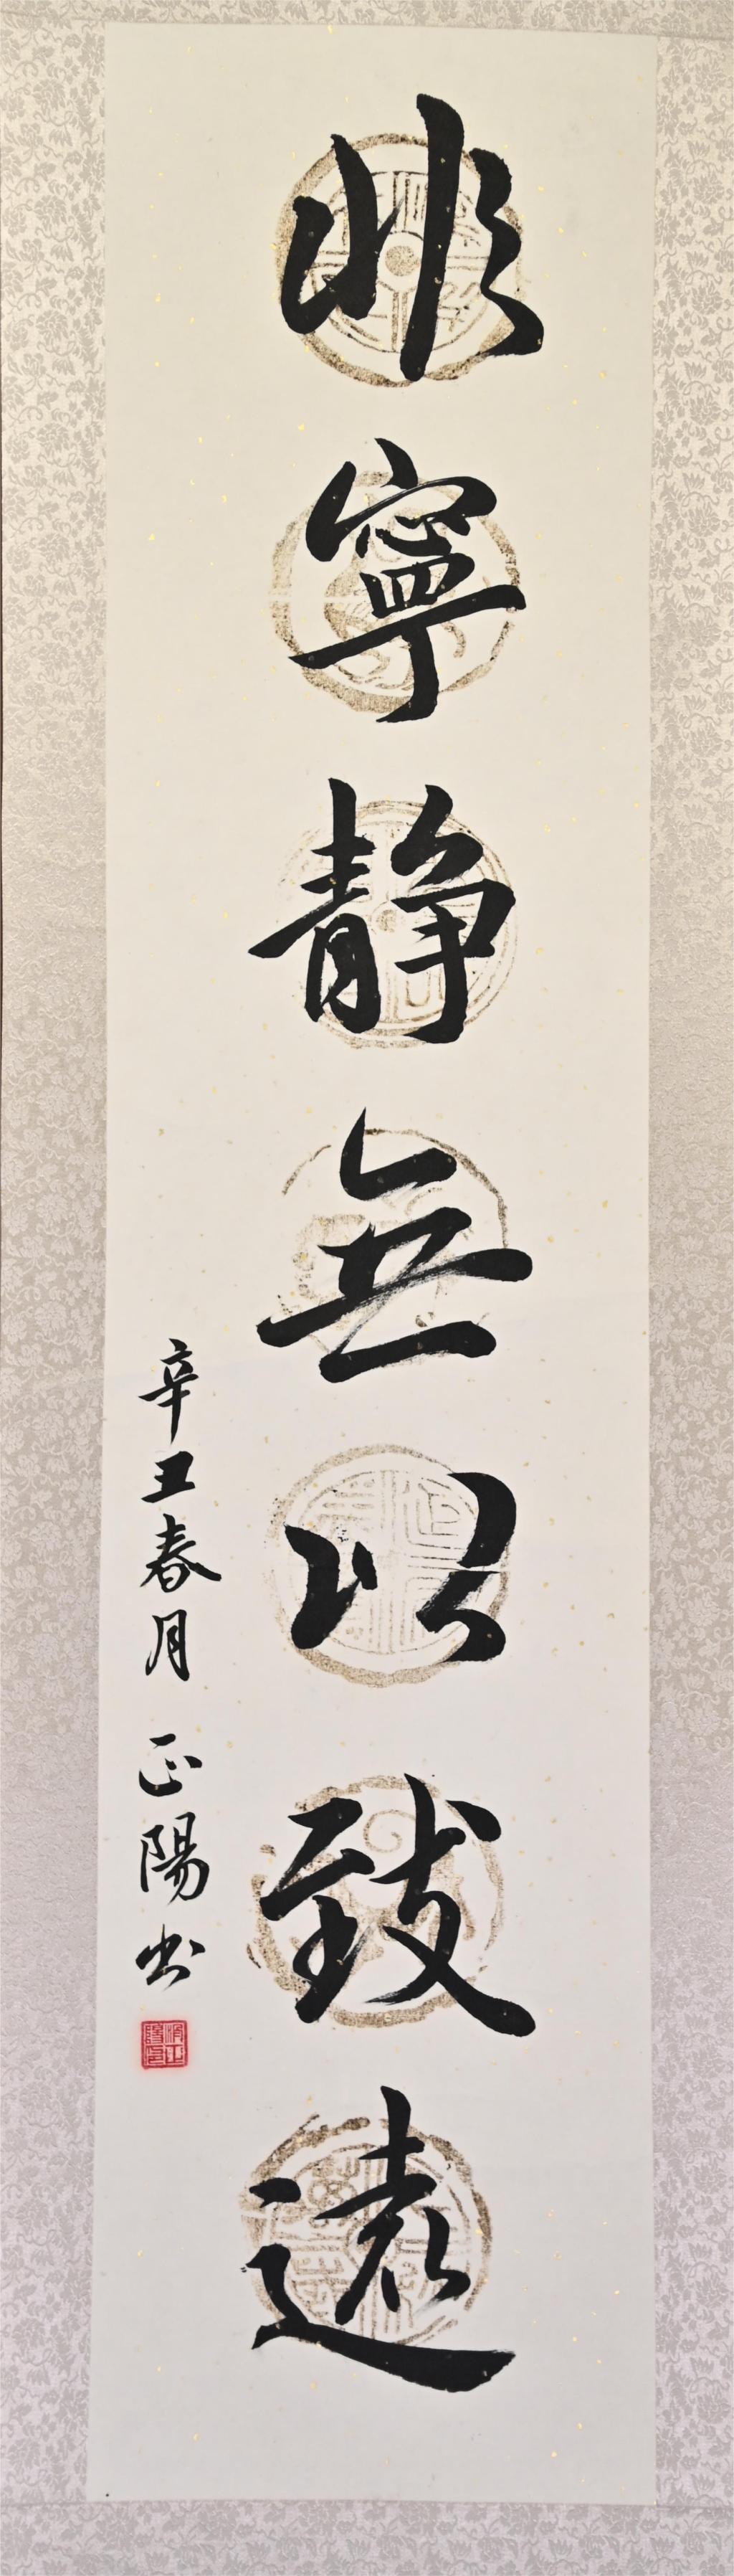 非寧静無以致遠
辛丑春月 正陽书